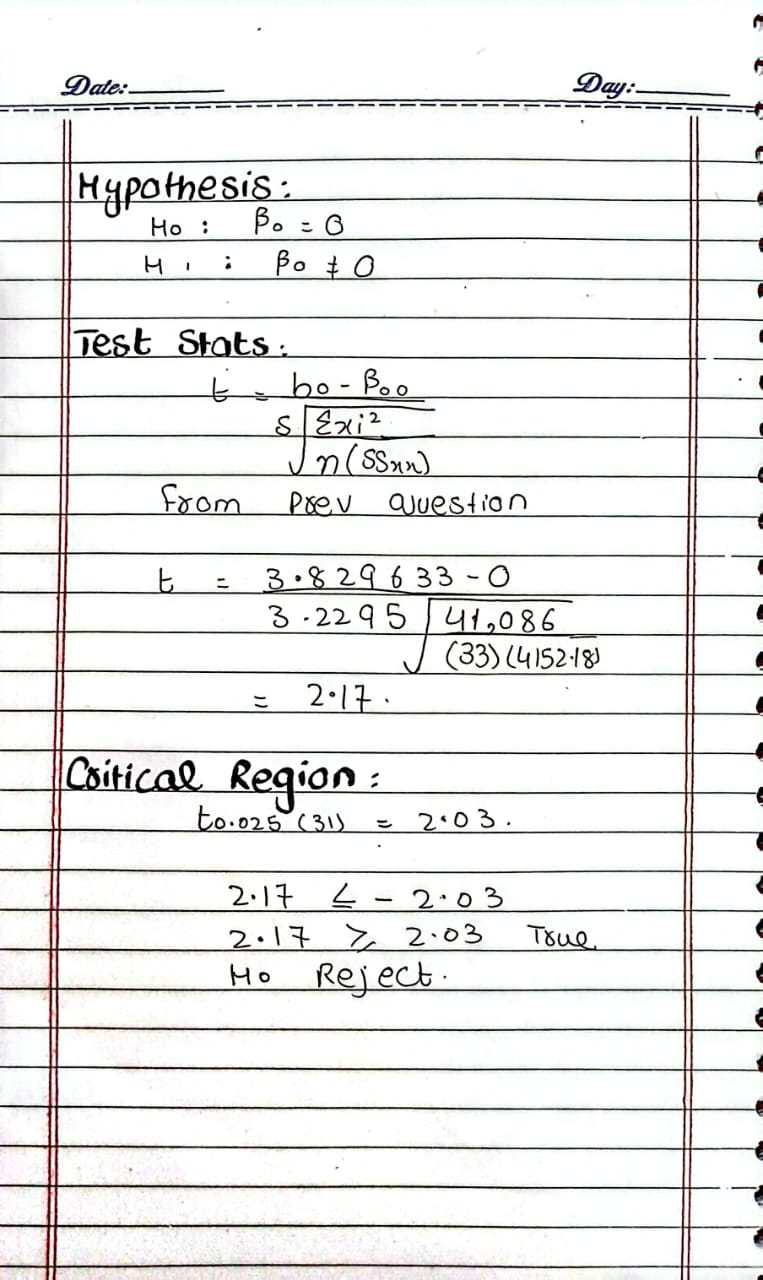 Date: Day:
Hypothesis:
H0 : β0 = 0
H1 : β0 ≠ 0
Test Stats:
t = b0 - β00
S √Σxi²
n(SSxx)
from Prev Question
t = 3.829633-0
3.2295 √41,086
(33)(4152.18)
= 2.17.
Critical Region:
t0.025 (31) = 2.03.
2.17 ≤ - 2.03
2.17 ≥ 2.03 True
H0 Reject.